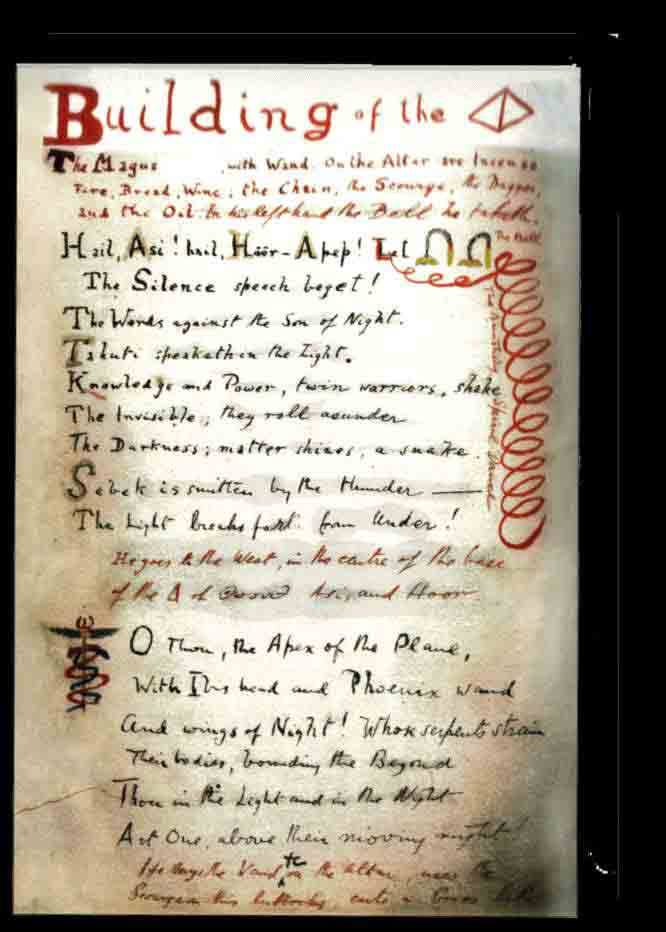 Building of the
The Magus with Wand. On the Altar are Incense
Fire, Bread, Wine, the Chain, the Scourge, the Dagger,
and the Oil. In his left hand the Bell he taketh.
Hail, Asi! hail, Hoor-Apep! Let
The Bell
The Silence speech beget!
The Words against the Son of Night.
Tahuti speaketh in the Light.
Knowledge and Power, twin warriors, shake
The Invisible; they roll asunder
The Darkness; matter shines, a snake.
Sebek is smitten by the thunder —
The Light breaks forth from Under!
He goes to the West, in the centre of the base
of the Δ of Asi, and Hoor.
O Thou, the Apex of the Plane,
With Ibis head and Phoenix wand
And wings of Night! Whose serpents strain
Their bodies, bounding the Beyond
Thou in the Light and in the Night
Art One, above their moving might!
He lays the Wand on the altar, uses the
Scourge on his buttocks, cuts a Cross